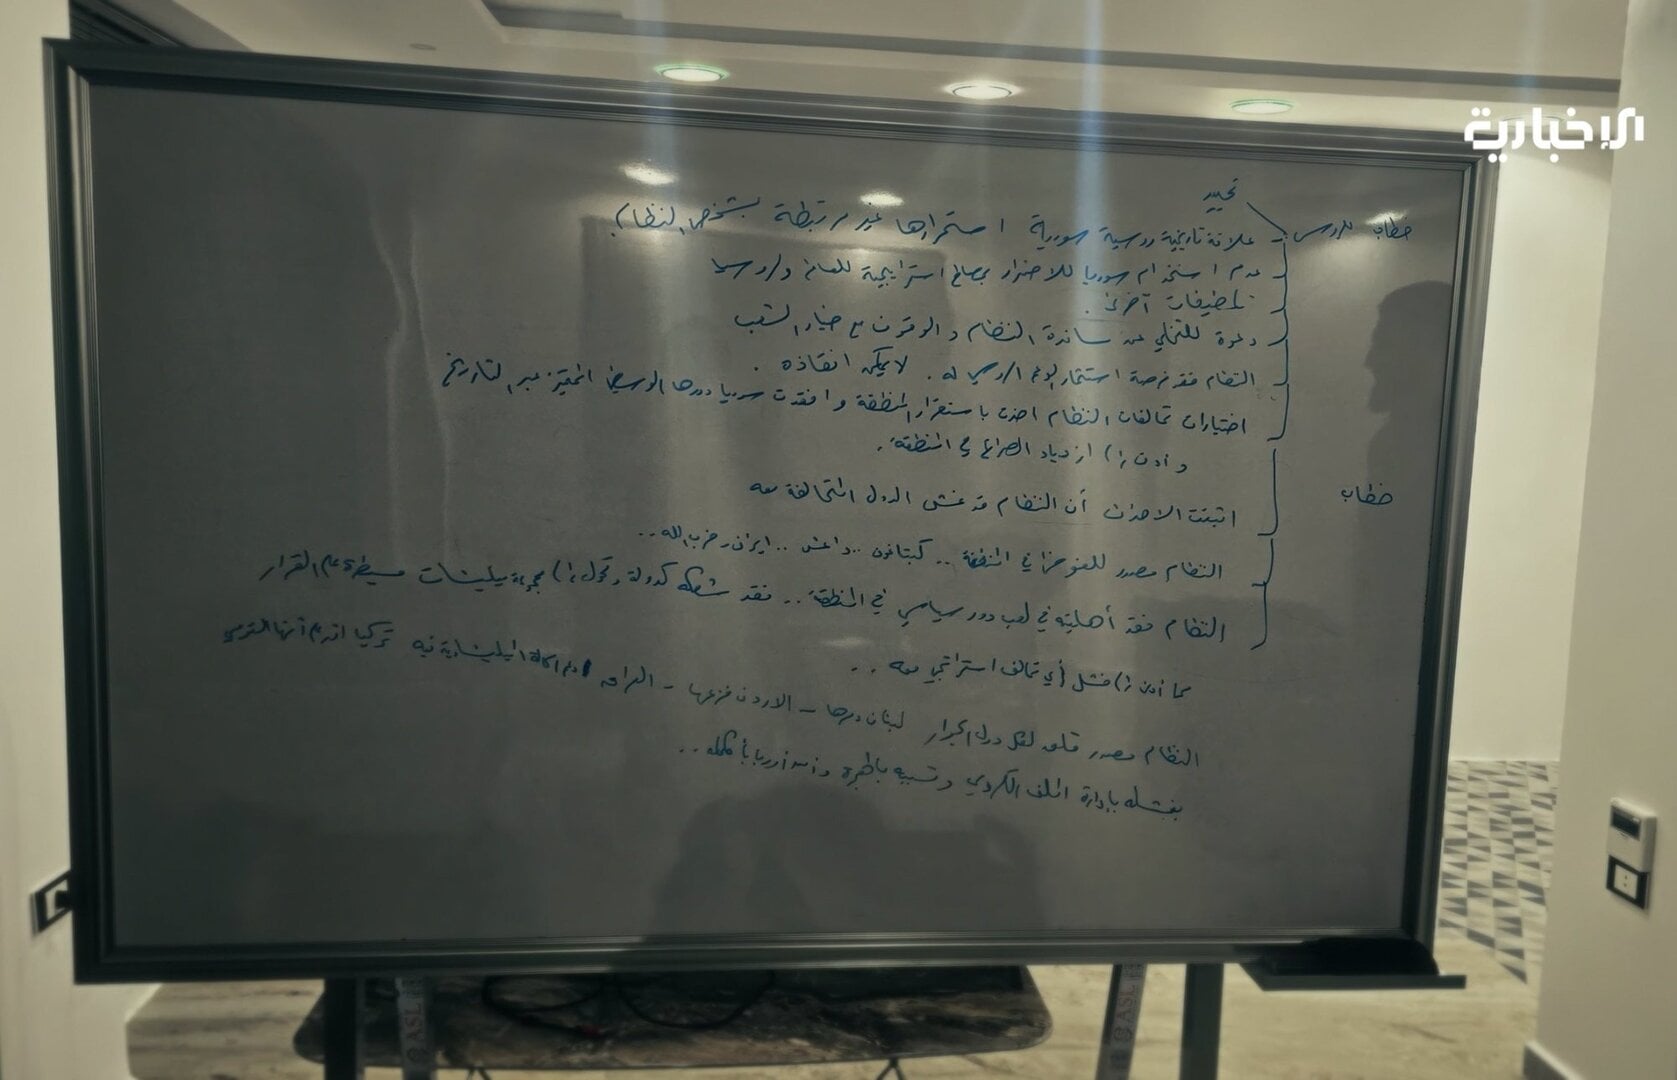 الإخبارية
تحييد
خطاب للروس
علاقة تاريخية روسية سورية استمرارها غير مرتبطة بشخص النظام
عدم استخدام سوريا للاضرار بمصالح استراتيجية للعالم ولروسيا
تطمينات أخرى.
دعوة للتخلي عن ساندة النظام والوقوف مع خيار الشعب
النظام فقد فرصة استثمار الدعم الروسي له. لا يمكن انقاذه.
اختيارات تحالفات النظام اضرت باستقرار المنطقة وافقدت سوريا دورها الوسيط المميز عبر التاريخ
وأدت إلى ازدياد الصراع في المنطقة.
خطاب
اثبتت الاحداث أن النظام قد غش الدول المتحالفة معه
النظام مصدر للفوضى في المنطقة.. كبتاغون.. داعش.. ايران وحزب الله..
النظام فقد أهليته في لعب دور سياسي في المنطقة.. فقد شكله كدولة وتحول إلى مجموعة ميليشيات مسيطرة على القرار
مما أدى إلى فشل أي تحالف استراتيجي معه..
النظام مصدر قلق لكل دول الجوار لبنان – الاردن – العراق الميليشياوية فيه تركيا أمنها القومي
بفشله بإدارة الملف الكردي وتسببه بالهجرة وأوربا بأكملها..
ASL